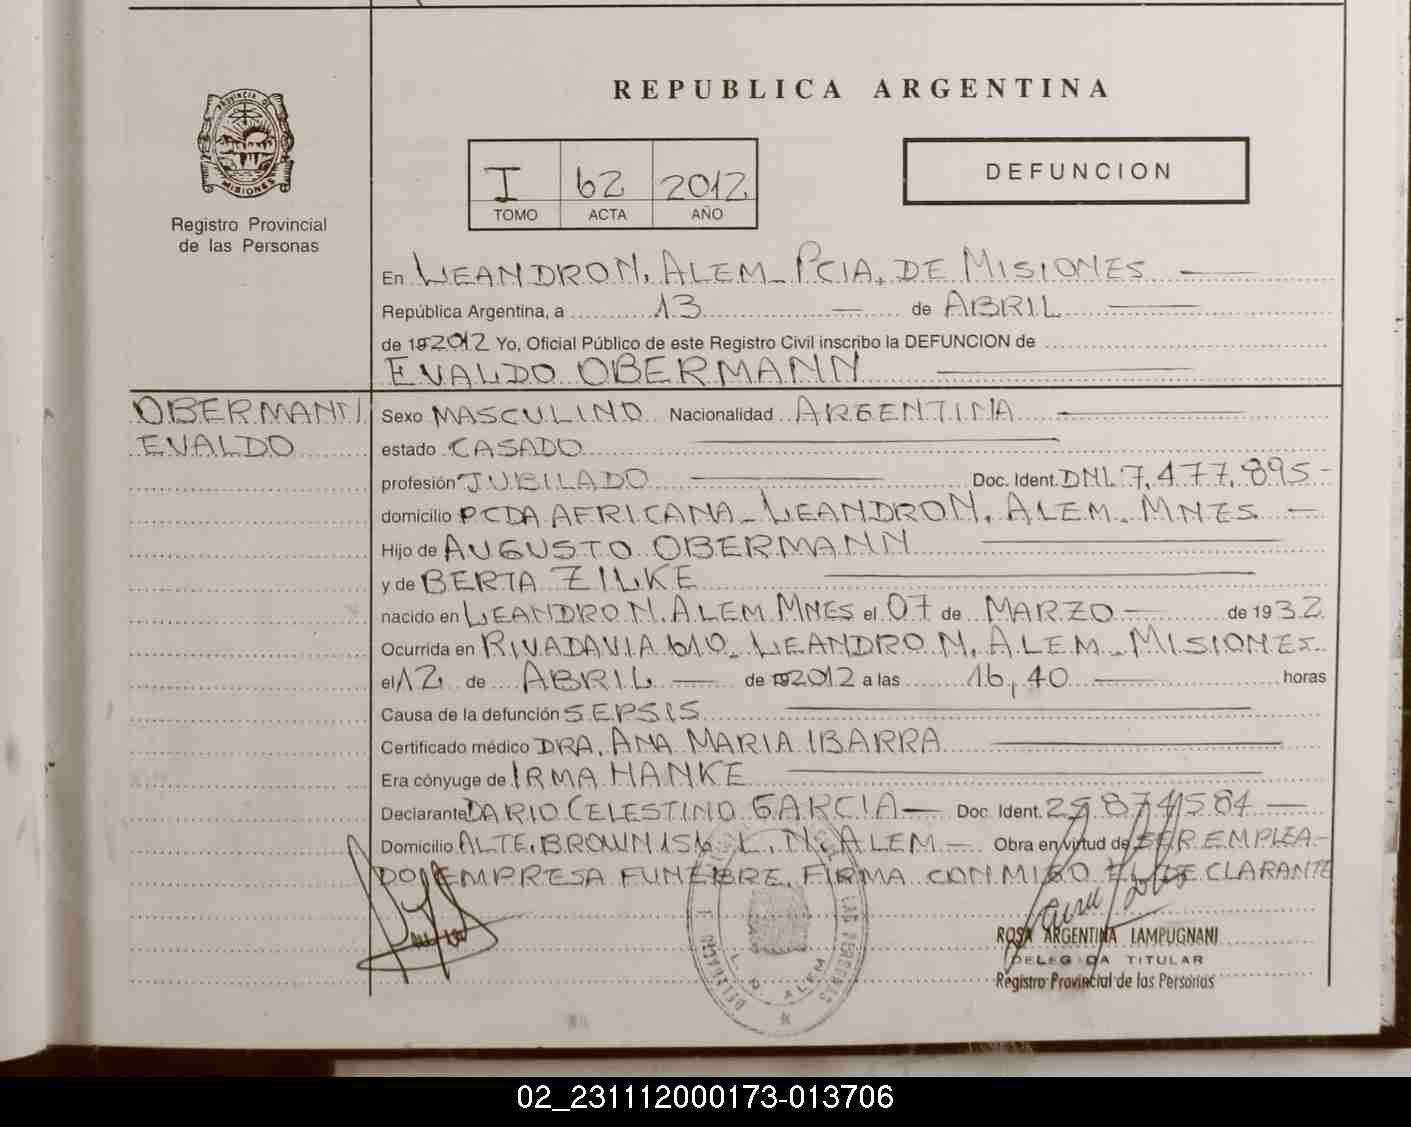 REPUBLICA ARGENTINA
PROVINCIA DE
MISIONES
Registro Provincial
de las Personas
I 62 2012
TOMO ACTA AÑO
DEFUNCION
En LEANDRO N. ALEM - PCIA. DE MISIONES
República Argentina, a 13 de ABRIL
de 19 2012 Yo, Oficial Público de este Registro Civil inscribo la DEFUNCION de
EVALDO OBERMANN
OBERMANN
EVALDO
Sexo MASCULINO Nacionalidad ARGENTINA
estado CASADO
profesión JUBILADO Doc. Ident. DNI. 7.477.895-
domicilio PCDA AFRICANA - LEANDRO N. ALEM. MNES -
Hijo de AUGUSTO OBERMANN
y de BERTA ZILKE
nacido en LEANDRO N. ALEM MNES el 07 de MARZO - de 1932
Ocurrida en RIVADAVIA 610 - LEANDRO N. ALEM - MISIONES.
el 12 de ABRIL - de 19 2012 a las 16,40 - horas
Causa de la defunción SEPSIS
Certificado médico DRA. ANA MARIA IBARRA
Era cónyuge de IRMA HANKE
Declarante DARIO CELESTINO GARCIA - Doc. Ident. 29.874.584 -
Domicilio ALTE. BROWN 156 L. N. ALEM - Obra en virtud de SER EMPLEA-
DO EMPRESA FUNEBRE. FIRMA CONMIGO EL DECLARANTE
LAS PERSONAS
L. N. ALEM
ROSA ARGENTINA LAMPUGNANI
DELEGADA TITULAR
Registro Provincial de las Personas
02_231112000173-013706